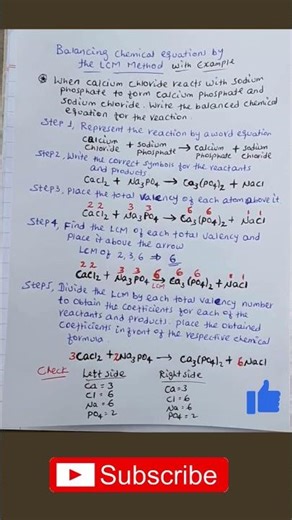 Balancing chemical equations by
the LCM Method with Example
When calcium chloride reacts with sodium
phosphate to form calcium phosphate and
sodium chloride. Write the balanced chemical
equation for the reaction.
Step 1, Represent the reaction by a word equation
calcium chloride + sodium phosphate → calcium phosphate + sodium chloride
Step 2, Write the correct symbols for the reactants
and products
CaCl2 + Na3PO4 → Ca3(PO4)2 + NaCl
Step 3, Place the total valency of each atom above it
2 2 3 3 6 6 1 1
CaCl2 + Na3PO4 → Ca3(PO4)2 + NaCl
Step 4, Find the LCM of each total valency and
Place it above the arrow
LCM of 2, 3, 6 ⇒ 6
2 2 3 3 6 6 6 1 1
CaCl2 + Na3PO4 → Ca3(PO4)2 + NaCl
LCM
Step 5, Divide the LCM by each total valency number
to obtain the coefficients for each of the
reactants and products. place the obtained
coefficients in front of the respective chemical
formula.
3CaCl2 + 2Na3PO4 → Ca3(PO4)2 + 6NaCl
Check Left side Right side
Ca = 3 Ca = 3
Cl = 6 Cl = 6
Na = 6 Na = 6
PO4 = 2 PO4 = 2
Subscribe